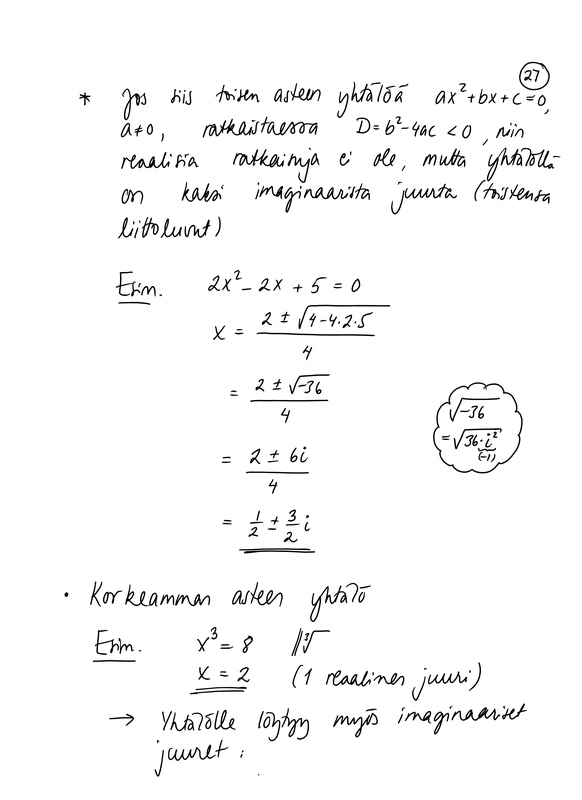 27
* Jos siis toisen asteen yhtälöä ax²+bx+c=0,
a≠0, ratkaistaessa D=b²-4ac <0, niin
reaalisia ratkaisuja ei ole, mutta yhtälöllä
on kaksi imaginaarista juurta (toistensa
liittoluvut)
Esim. 2x² - 2x + 5 = 0
x = (2 ± √(4-4·2·5))/4
= (2 ± √-36)/4
√-36
= √(36·i²)
(-1)
= (2 ± 6i)/4
= 1/2 ± 3/2 i
• Korkeamman asteen yhtälö
Esim. x³ = 8 ||∛
x = 2 (1 reaalinen juuri)
→ Yhtälölle löytyy myös imaginaariset
juuret: